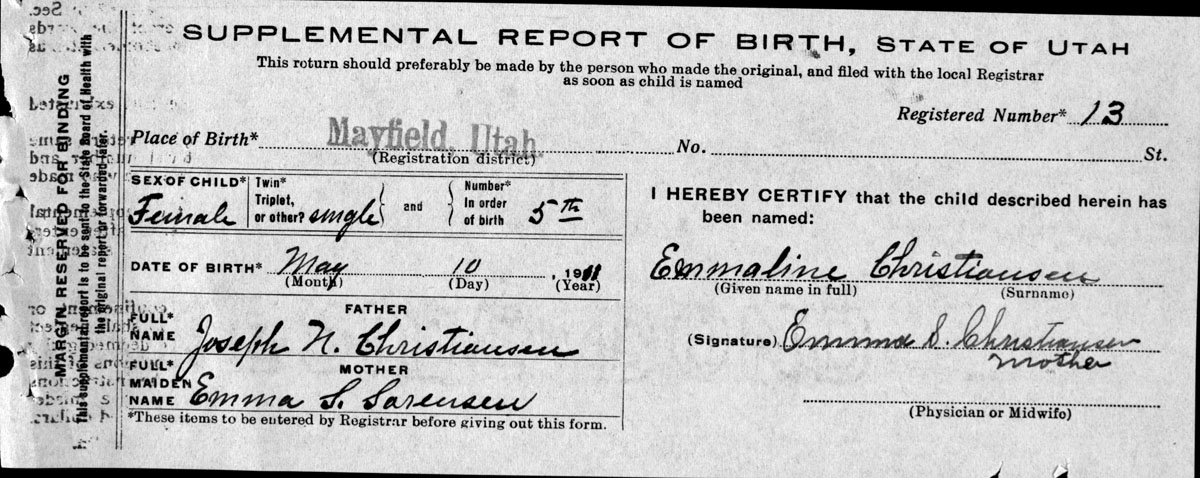 SUPPLEMENTAL REPORT OF BIRTH, STATE OF UTAH
This return should preferably be made by the person who made the original, and filed with the local Registrar
as soon as child is named
Registered Number* 13
Place of Birth* Mayfield, Utah. No. St.
(Registration district)
SEX OF CHILD* Female
Twin* Triplet, or other? single
and
Number* In order of birth 5th
DATE OF BIRTH* May 10, 1911
(Month) (Day) (Year)
FATHER
FULL* NAME Joseph N. Christiansen
MOTHER
FULL* MAIDEN NAME Emma S. Sorensen
*These items to be entered by Registrar before giving out this form.
I HEREBY CERTIFY that the child described herein has
been named:
Emmaline Christiansen
(Given name in full) (Surname)
(Signature) Emma S. Christiansen
Mother
(Physician or Midwife)
MARGIN RESERVED FOR BINDING
This supplemental report is to be sent to the State Board of Health with
the original report or forwarded later.